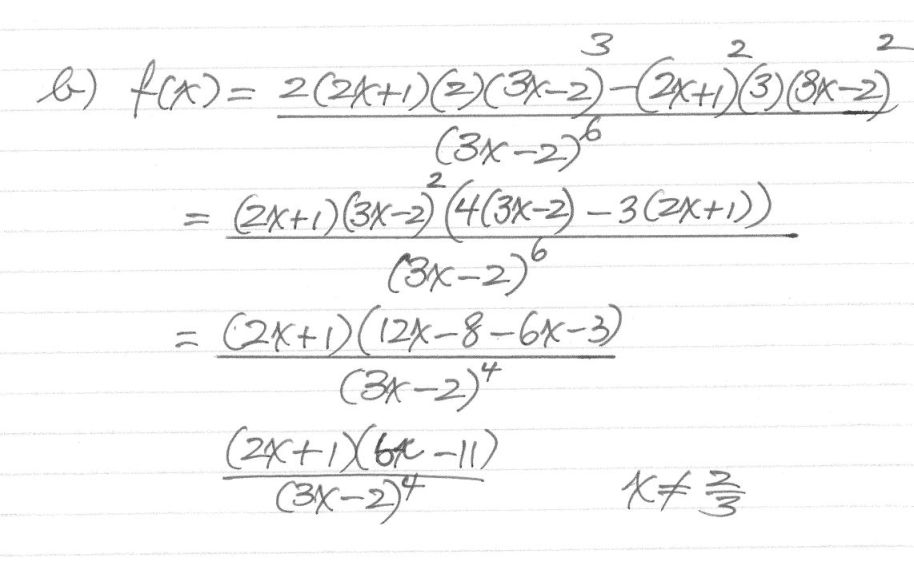 b) f(x) = \frac{2(2x+1)(2)(3x-2)^3-(2x+1)^2(3)(3x-2)^2}{(3x-2)^6}
= \frac{(2x+1)(3x-2)^2(4(3x-2)-3(2x+1))}{(3x-2)^6}
= \frac{(2x+1)(12x-8-6x-3)}{(3x-2)^4}
\frac{(2x+1)(6x-11)}{(3x-2)^4} x ≠ \frac{2}{3}